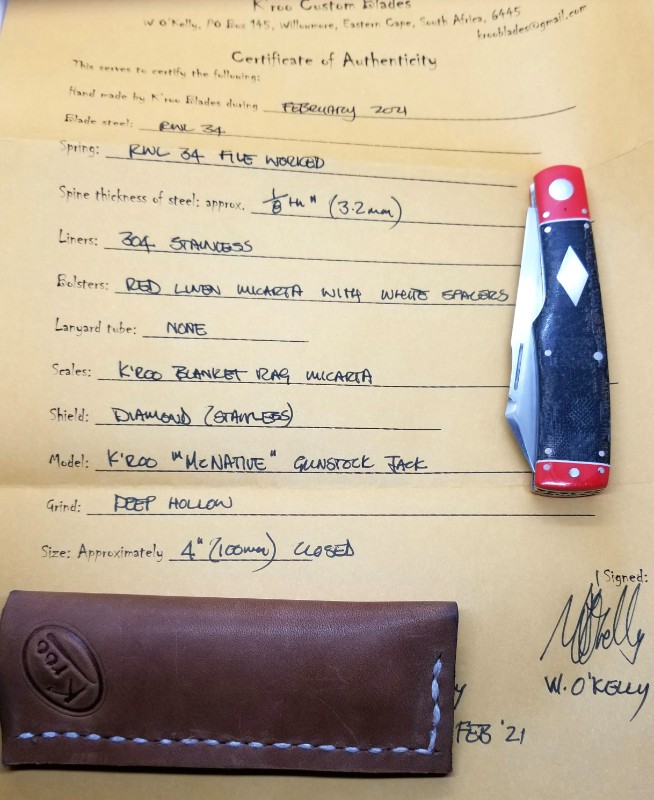 K'roo Custom Blades
W O'Kelly, PO Box 145, Willowmore, Eastern Cape, South Africa, 6445
krooblades@gmail.com
Certificate of Authenticity
This serves to certify the following:
Hand made by K'roo Blades during FEBRUARY 2021
Blade steel: RWL 34
Spring: RWL 34 FILE WORKED
Spine thickness of steel: approx. 1/8 th" (3.2mm)
Liners: 304 STAINLESS
Bolsters: RED LINEN MICARTA WITH WHITE SPACERS
Lanyard tube: NONE
Scales: K'ROO BLANKET RAG MICARTA
Shield: DIAMOND (STAINLESS)
Model: K'ROO "MCNATIVE" GUNSTOCK JACK
Grind: DEEP HOLLOW
Size: Approximately 4" (100mm) CLOSED
Signed:
WOKelly
W. O'KELLY
K'roo
y
FEB '21